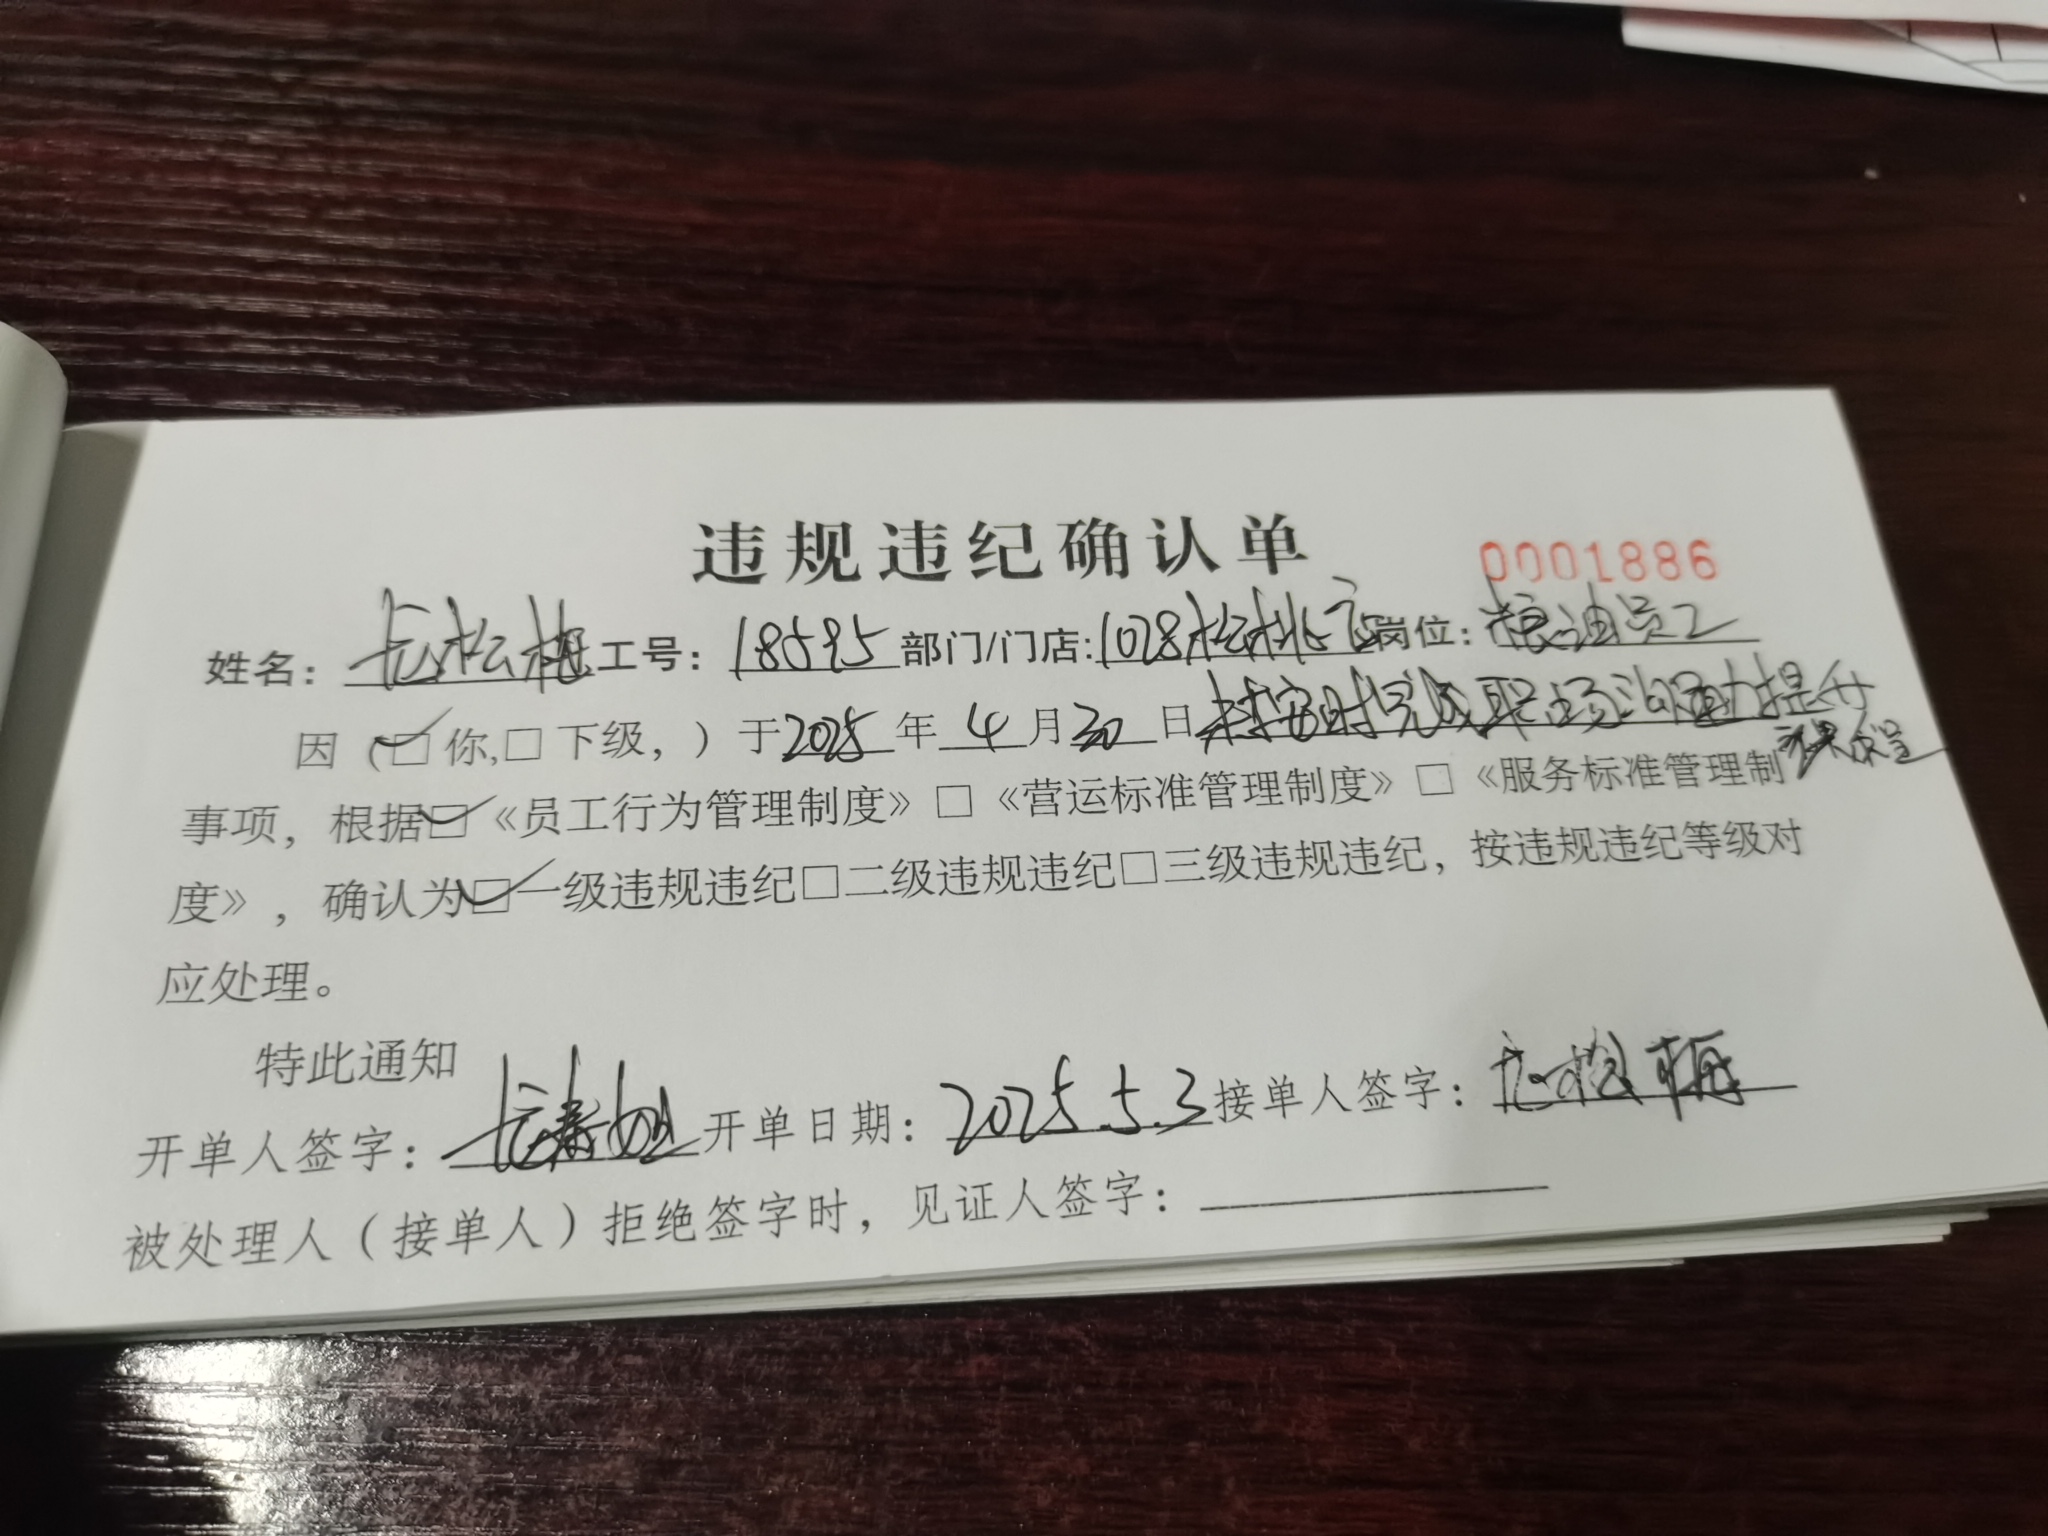 违规违纪确认单
0001886
姓名：龙松梅 工号：18595 部门/门店:1028松桃店 岗位：粮油员工
因（☑你,□下级，）于2025年4月30日未按时完成职场沟通力提升
课程
事项，根据☑《员工行为管理制度》□《营运标准管理制度》□《服务标准管理制
度》，确认为☑一级违规违纪□二级违规违纪□三级违规违纪，按违规违纪等级对
应处理。
特此通知
开单人签字：龙 开单日期：2025.5.3 接单人签字：龙松梅
被处理人（接单人）拒绝签字时，见证人签字：